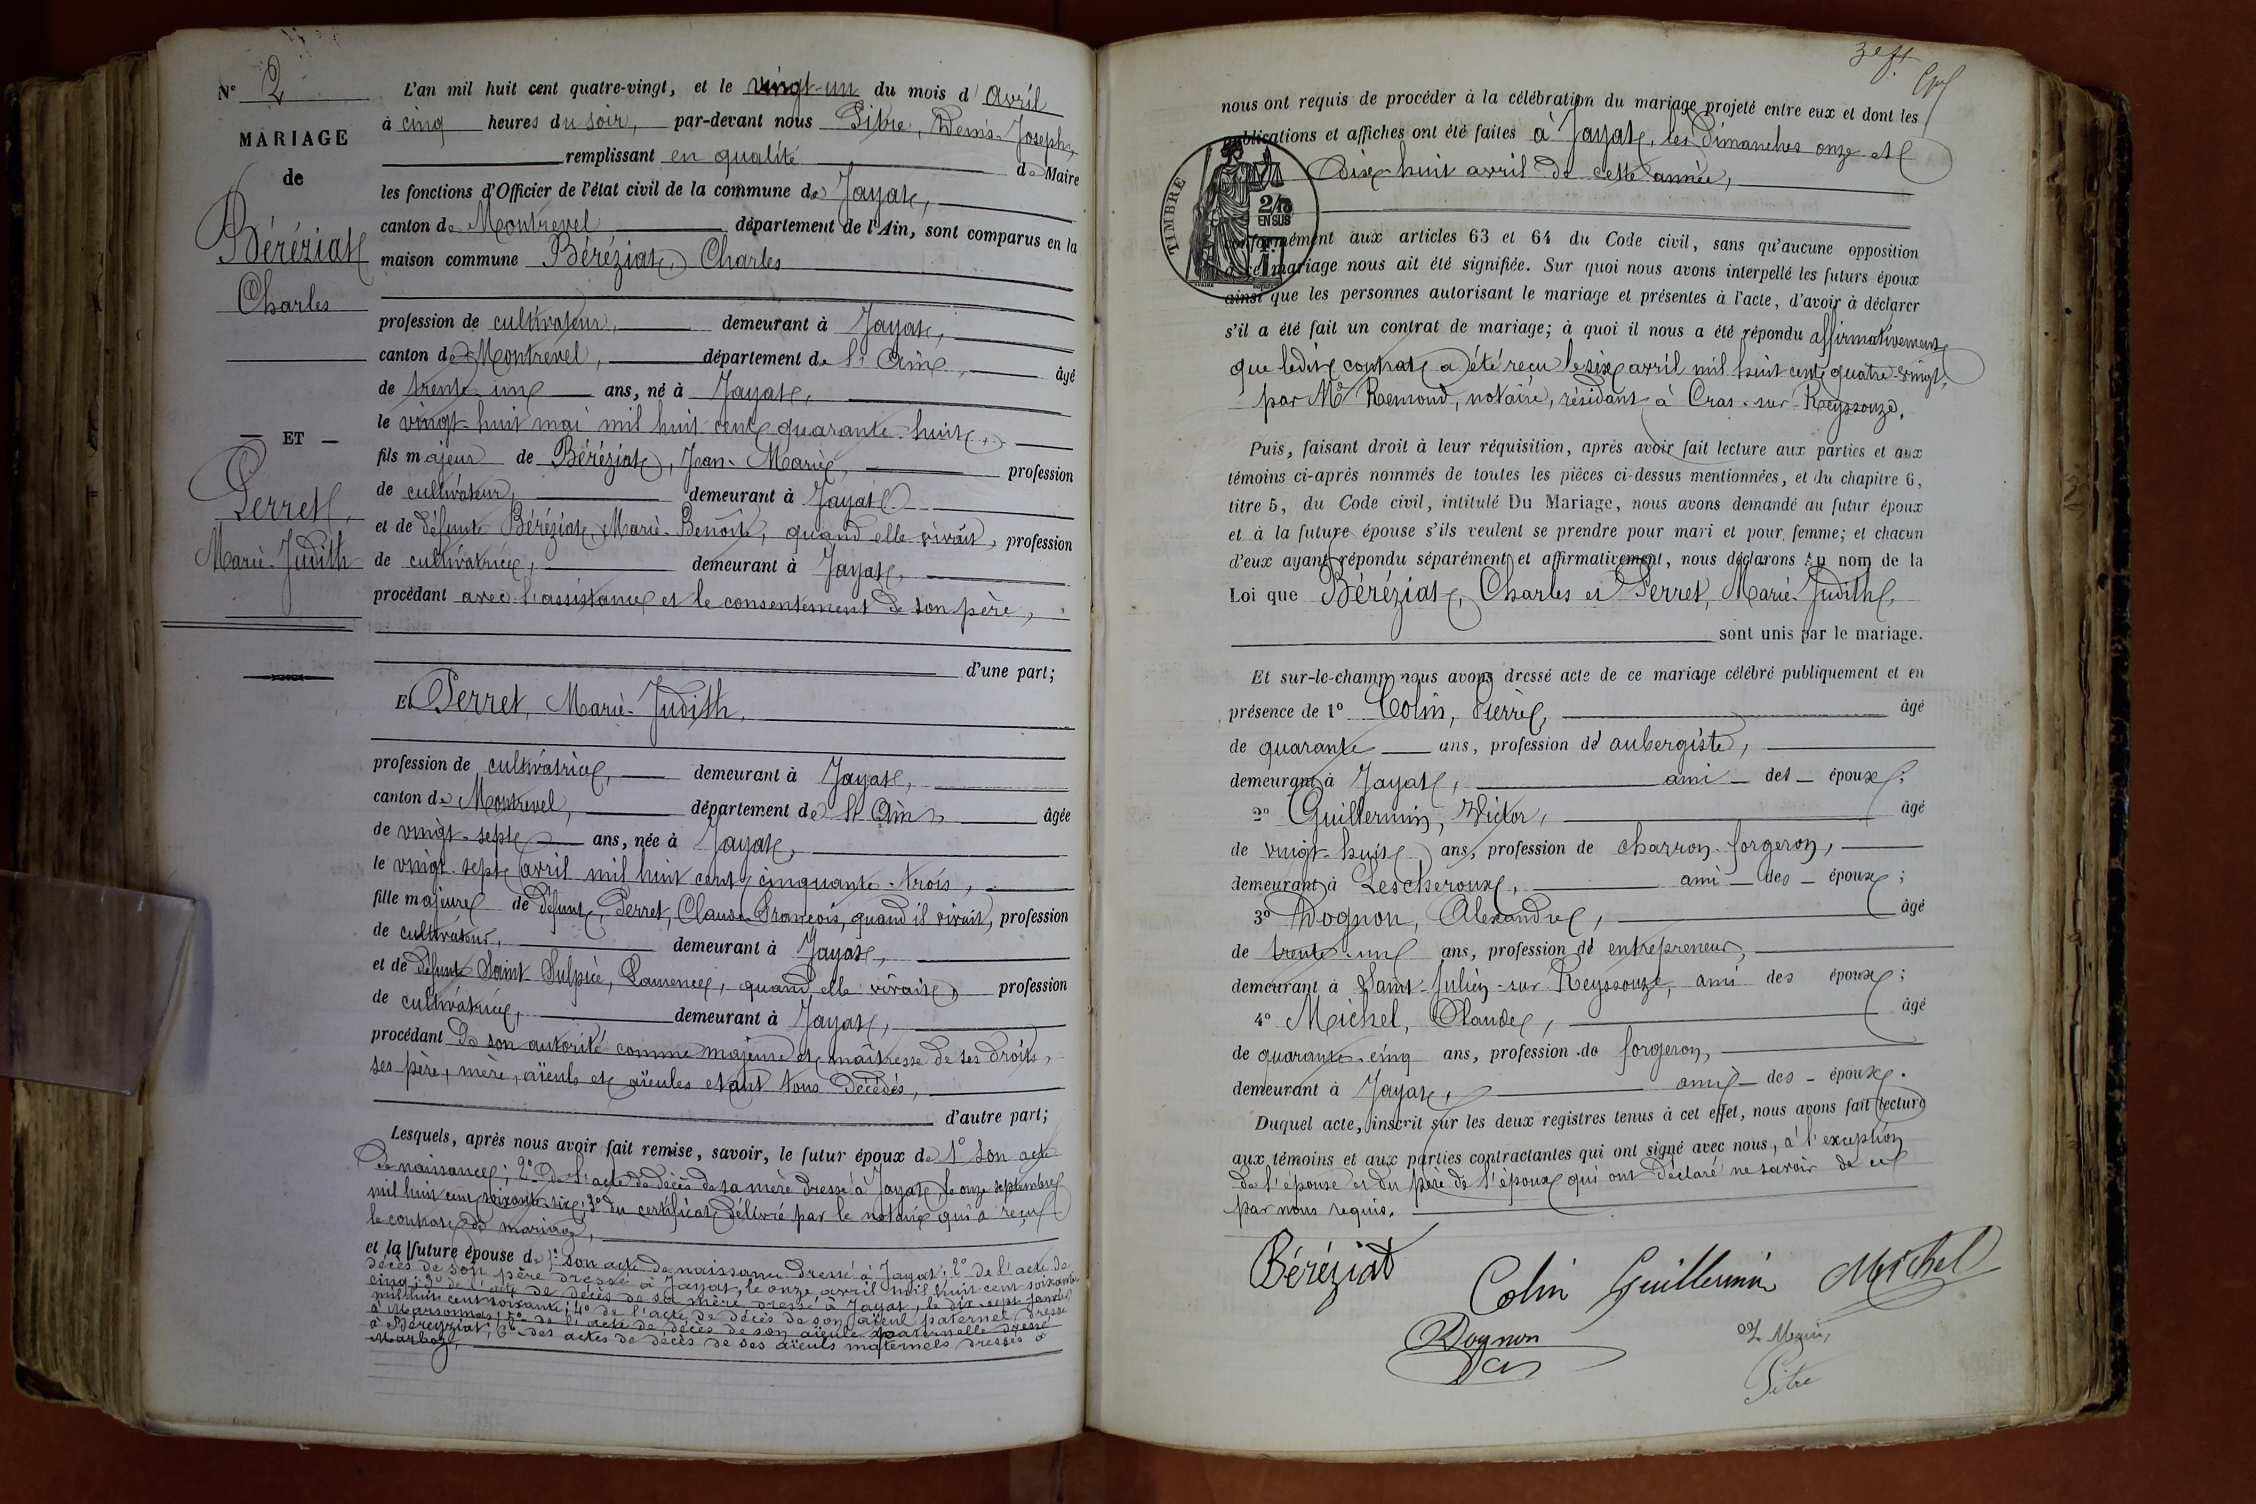 N° 2
MARIAGE
de
Béréziat
Charles
— ET —
Perret,
Marie-Judith
L'an mil huit cent quatre-vingt, et le vingt-un du mois d'Avril
à cinq heures du soir, par-devant nous Pitre, Denis-Joseph,
remplissant en qualité de Maire
les fonctions d'Officier de l'état civil de la commune de Jayat,
canton de Montrevel département de l'Ain, sont comparus en la
maison commune Béréziat, Charles
profession de cultivateur, demeurant à Jayat,
canton de Montrevel, département de l'Ain, âgé
de trente-un ans, né à Jayat,
le vingt-huit mai mil huit cent quarante-huit,
fils majeur de Béréziat, Jean-Marie, profession
de cultivateur, demeurant à Jayat
et de défunte Béréziat, Marie-Benoite, quand elle vivait, profession
de cultivatrice, demeurant à Jayat,
procédant avec l'assistance et le consentement de son père,
d'une part;
Et Perret, Marie-Judith,
profession de cultivatrice, demeurant à Jayat,
canton de Montrevel, département de l'Ain, âgée
de vingt-sept ans, née à Jayat,
le vingt-sept avril mil huit cent cinquante-trois,
fille majeure de défunt, Perret, Claude François, quand il vivait, profession
de cultivateur, demeurant à Jayat,
et de défunte Saint Sulpice, Laurence, quand elle vivait, profession
de cultivatrice, demeurant à Jayat,
procédant de son autorité comme majeure et maîtresse de ses droits,
ses père, mère, aïeuls et aïeules étant tous décédés,
d'autre part;
Lesquels, après nous avoir fait remise, savoir, le futur époux de 1° son acte
de naissance; 2° de l'acte de décès de sa mère dressé à Jayat, le onze septembre
mil huit cent soixante-six; 3° du certificat délivré par le notaire qui a reçu
le contrat de mariage,
et la future épouse de 1° son acte de naissance dressé à Jayat; 2° de l'acte de
décès de son père dressé à Jayat, le onze avril mil huit cent soixante
cinq; 3° de l'acte de décès de sa mère dressé à Jayat, le dix-sept janvier
mil huit cent soixante; 4° de l'acte de décès de son aïeul paternel dressé
à Marsonnas; 5° de l'acte de décès de son aïeule paternelle dressé
à Béreyziat; 6° des actes de décès de ses aïeuls maternels dressés à
Marboz,
nous ont requis de procéder à la célébration du mariage projeté entre eux et dont les
publications et affiches ont été faites à Jayat, les dimanches onze et
dix-huit avril de cette année,
TIMBRE
2/10
EN SUS
conformément aux articles 63 et 64 du Code civil, sans qu'aucune opposition
à ce mariage nous ait été signifiée. Sur quoi nous avons interpellé les futurs époux
ainsi que les personnes autorisant le mariage et présentes à l'acte, d'avoir à déclarer
s'il a été fait un contrat de mariage; à quoi il nous a été répondu affirmativement
que ledit contrat a été reçu le six avril mil huit cent quatre-vingt,
par Me Remond, notaire, résidant à Cras-sur-Reyssouze.
Puis, faisant droit à leur réquisition, après avoir fait lecture aux parties et aux
témoins ci-après nommés de toutes les pièces ci-dessus mentionnées, et du chapitre 6,
titre 5, du Code civil, intitulé Du Mariage, nous avons demandé au futur époux
et à la future épouse s'ils veulent se prendre pour mari et pour femme; et chacun
d'eux ayant répondu séparément et affirmativement, nous déclarons Au nom de la
Loi que Béréziat, Charles et Perret, Marie-Judith,
sont unis par le mariage.
Et sur-le-champ nous avons dressé acte de ce mariage célébré publiquement et en
présence de 1° Colin, Pierre, âgé
de quarante ans, profession de aubergiste,
demeurant à Jayat, ami des époux;
2° Guillermin, Victor, âgé
de vingt-huit ans, profession de charron-forgeron,
demeurant à Lescheroux, ami des époux;
3° Dognon, Alexandre, âgé
de trente-un ans, profession de entrepreneur,
demeurant à Saint-Julien-sur Reyssouze, ami des époux;
4° Michel, Claude, âgé
de quarante-cinq ans, profession de forgeron,
demeurant à Jayat, ami des époux.
Duquel acte, inscrit sur les deux registres tenus à cet effet, nous avons fait lecture
aux témoins et aux parties contractantes qui ont signé avec nous, à l'exception
de l'épouse et du père de l'époux qui ont déclaré ne savoir de ce
par nous requis.
Béréziat Colin Guillermin Michel
Dognon Le Maire,
Pitre